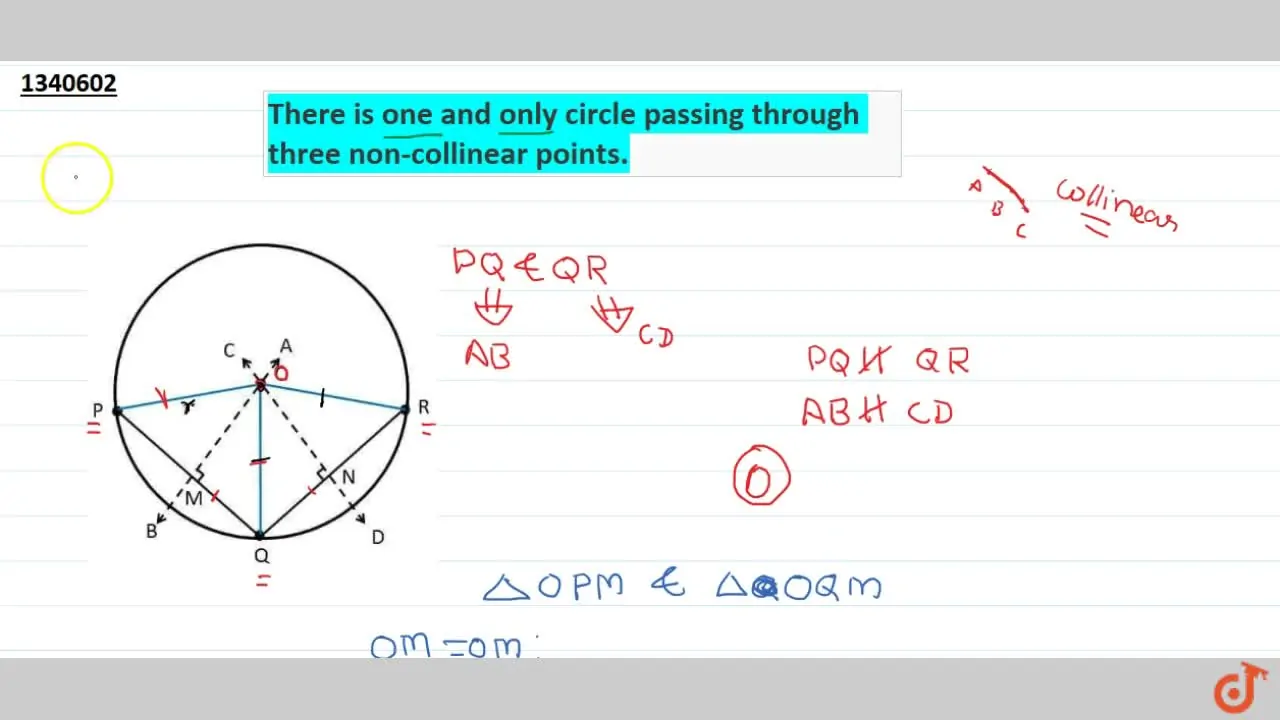 1340602
There is one and only circle passing through
three non-collinear points.
A
B
C
collinear
PQ & QR
AB
CD
PQ ∦ QR
AB ∦ CD
O
C
A
O
P
r
R
M
N
B
D
Q
△OPM & △OQM
OM = OM :